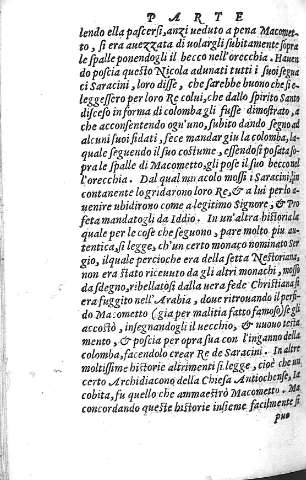 PARTE
lendo ella pascersi, anzi ueduto a pena Macomet-
to, si era auezzata di uolargli subitamente sopra
le spalle ponendogli il becco nell'orecchia. Hauen
do poscia questo Nicola adunati tutti i suoi segua
ci Saracini, loro disse, che sarebbe buono che si e-
leggessero per loro Re colui, che dallo spirito Santo
disceso in forma di colomba gli fusse dimostrato, a
che acconsentendo ogn'uno, subito dando segno ad
alcuni suoi fidati, fece mandar giu la colomba, la-
quale seguendo il suo costume, essendosi posata so-
pra le spalle di Macometto, gli pose il suo becco nel
l'orecchia. Dal qual miracolo mossi i Saracini, in
contanente lo gridarono loro Re, & a lui per lo a-
uenire ubidirono come a legitimo Signore, & Pro
feta mandatogli da Iddio. In un'altra historia la
quale per le cose che seguono, pare molto piu au-
tentica, si legge, ch'un certo monaco nominato Ser
gio, ilquale percioche era della setta Nestoriana,
non era stato riceuuto da gli altri monachi, mosso
da sdegno, ribellatosi dalla uera fede Christiana si
era fuggito nell'Arabia, doue ritrouando il perfi-
do Macometto (gia per malitia fatto famoso) se gli
accostò, insegnandogli il uecchio, & nuouo testa
mento, & poscia per opra sua con l'inganno della
colomba, facendolo crear Re de Saracini. In altre
moltissime historie altrimenti si legge, cioè che un
certo Archidiacono della Chiesa Antiochense, Ia
cobita, fu quello che ammaestrò Macometto. Ma
concordando queste historie insieme facilmente si
puo